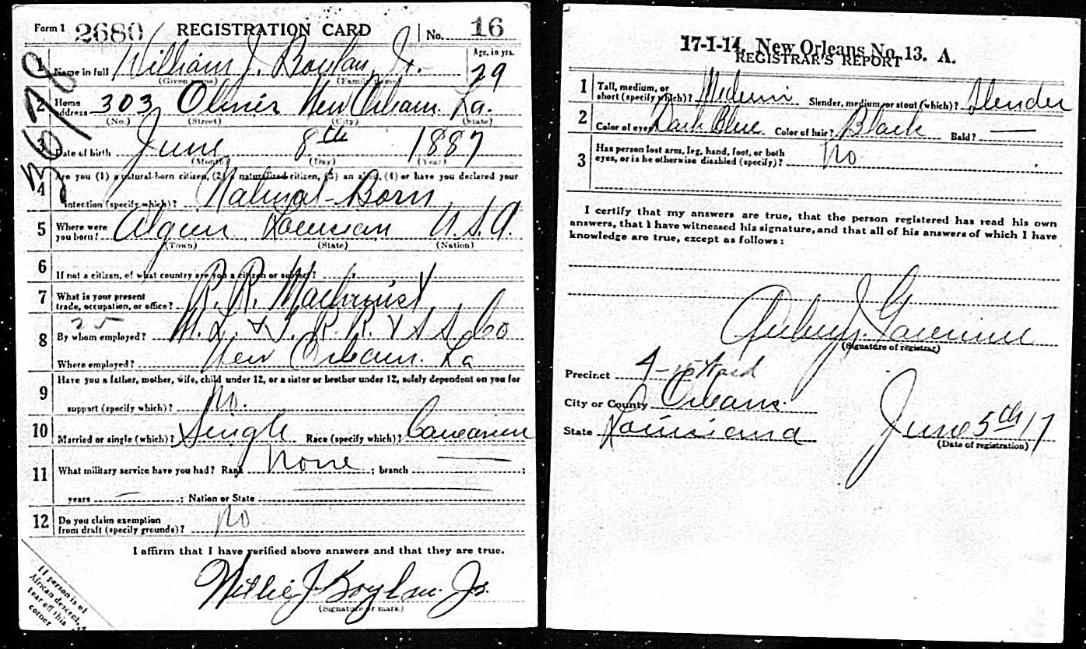 Form 1 2680 REGISTRATION CARD No. 16
3678
1 Name in full William J. Boylan, Jr. Age, in yrs. 29
(Given name) (Family name)
2 Home address 303 Olivier New Orleans La.
(No.) (Street) (City) (State)
3 Date of birth June 8th 1887
(Month) (Day) (Year)
4 Are you (1) a natural-born citizen, (2) a naturalized citizen, (3) an alien, (4) or have you declared your
intention (specify which)? Natural-Born
5 Where were you born? Algiers Louisian U.S.A.
(Town) (State) (Nation)
6 If not a citizen, of what country are you a citizen or subject?
7 What is your present trade, occupation, or office? R. R. Machinist
8 By whom employed? M. L. & T. R. R. & S. S. Co
Where employed? New Orleans. La
9 Have you a father, mother, wife, child under 12, or a sister or brother under 12, solely dependent on you for
support (specify which)? No.
10 Married or single (which)? Single Race (specify which)? Caucasian
11 What military service have you had? Rank none ; branch — ;
years — ; Nation or State
12 Do you claim exemption from draft (specify grounds)? No
I affirm that I have verified above answers and that they are true.
Willie J Boylan. Jr.
(Signature or mark)
If person is of
African descent,
tear off this
corner
17-1-14, New Orleans No. 13. A.
REGISTRAR'S REPORT
1 Tall, medium, or short (specify which)? Medium Slender, medium, or stout (which)? Slender
2 Color of eyes? Dark Blue Color of hair? Black Bald? —
3 Has person lost arm, leg, hand, foot, or both
eyes, or is he otherwise disabled (specify)? No
I certify that my answers are true, that the person registered has read his own
answers, that I have witnessed his signature, and that all of his answers of which I have
knowledge are true, except as follows:
(Signature of registrar)
Precinct 4-15 Ward
City or County Orleans
State Louisiana June 5th 17
(Date of registration)